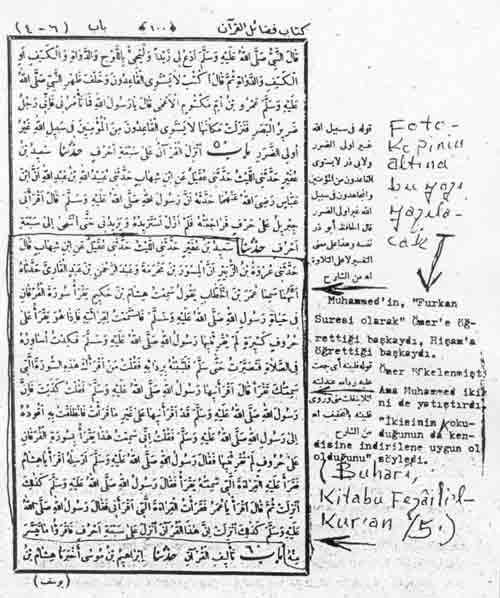 كتاب فضائل القرآن ﴿١٠٠﴾ باب (٤-٦)
قَالَ النَّبِيُّ صَلَّى اللَّهُ عَلَيْهِ وَسَلَّمَ ادْعُ لِي زَيْدًا وَلْيَجِئْ بِاللَّوْحِ وَالدَّوَاةِ وَالْكَتِفِ أَوِ
الْكَتِفِ وَالدَّوَاةِ ثُمَّ قَالَ اكْتُبْ لَا يَسْتَوِي الْقَاعِدُونَ وَخَلْفَ ظَهْرِ النَّبِيِّ صَلَّى اللَّهُ
عَلَيْهِ وَسَلَّمَ عَمْرُو بْنُ أُمِّ مَكْتُومٍ الْأَعْمَى قَالَ يَا رَسُولَ اللَّهِ فَمَا تَأْمُرُنِي فَإِنِّي رَجُلٌ
ضَرِيرُ الْبَصَرِ فَنَزَلَتْ مَكَانَهَا لَا يَسْتَوِي الْقَاعِدُونَ مِنَ الْمُؤْمِنِينَ فِي سَبِيلِ اللَّهِ غَيْرُ
أُولِي الضَّرَرِ بَابُ ٥ أُنْزِلَ الْقُرْآنُ عَلَى سَبْعَةِ أَحْرُفٍ حَدَّثَنَا سَعِيدُ بْنُ
عُفَيْرٍ حَدَّثَنِي اللَّيْثُ حَدَّثَنِي عُقَيْلٌ عَنِ ابْنِ شِهَابٍ حَدَّثَنِي عُبَيْدُ اللَّهِ بْنُ عَبْدِ اللَّهِ أَنَّ ابْنَ
عَبَّاسٍ رَضِيَ اللَّهُ عَنْهُمَا حَدَّثَهُ أَنَّ رَسُولَ اللَّهِ صَلَّى اللَّهُ عَلَيْهِ وَسَلَّمَ قَالَ أَقْرَأَنِي
جِبْرِيلُ عَلَى حَرْفٍ فَرَاجَعْتُهُ فَلَمْ أَزَلْ أَسْتَزِيدُهُ وَيَزِيدُنِي حَتَّى انْتَهَى إِلَى سَبْعَةِ
أَحْرُفٍ حَدَّثَنَا سَعِيدُ بْنُ عُفَيْرٍ حَدَّثَنِي اللَّيْثُ حَدَّثَنِي عُقَيْلٌ عَنِ ابْنِ شِهَابٍ قَالَ
حَدَّثَنِي عُرْوَةُ بْنُ الزُّبَيْرِ أَنَّ الْمِسْوَرَ بْنَ مَخْرَمَةَ وَعَبْدَ الرَّحْمَنِ بْنَ عَبْدٍ الْقَارِيَّ حَدَّثَاهُ
أَنَّهُمَا سَمِعَا عُمَرَ بْنَ الْخَطَّابِ يَقُولُ سَمِعْتُ هِشَامَ بْنَ حَكِيمٍ يَقْرَأُ سُورَةَ الْفُرْقَانِ
فِي حَيَاةِ رَسُولِ اللَّهِ صَلَّى اللَّهُ عَلَيْهِ وَسَلَّمَ فَاسْتَمَعْتُ لِقِرَاءَتِهِ فَإِذَا هُوَ يَقْرَأُ عَلَى
حُرُوفٍ كَثِيرَةٍ لَمْ يُقْرِئْنِيهَا رَسُولُ اللَّهِ صَلَّى اللَّهُ عَلَيْهِ وَسَلَّمَ فَكِدْتُ أُسَاوِرُهُ
فِي الصَّلَاةِ فَتَصَبَّرْتُ حَتَّى سَلَّمَ فَلَبَّبْتُهُ بِرِدَائِهِ فَقُلْتُ مَنْ أَقْرَأَكَ هَذِهِ السُّورَةَ الَّتِي
سَمِعْتُكَ تَقْرَأُ قَالَ أَقْرَأَنِيهَا رَسُولُ اللَّهِ صَلَّى اللَّهُ عَلَيْهِ وَسَلَّمَ فَقُلْتُ كَذَبْتَ فَإِنَّ
رَسُولَ اللَّهِ صَلَّى اللَّهُ عَلَيْهِ وَسَلَّمَ قَدْ أَقْرَأَنِيهَا عَلَى غَيْرِ مَا قَرَأْتَ فَانْطَلَقْتُ بِهِ أَقُودُهُ
إِلَى رَسُولِ اللَّهِ صَلَّى اللَّهُ عَلَيْهِ وَسَلَّمَ فَقُلْتُ إِنِّي سَمِعْتُ هَذَا يَقْرَأُ بِسُورَةِ الْفُرْقَانِ
عَلَى حُرُوفٍ لَمْ تُقْرِئْنِيهَا فَقَالَ رَسُولُ اللَّهِ صَلَّى اللَّهُ عَلَيْهِ وَسَلَّمَ أَرْسِلْهُ اقْرَأْ يَا هِشَامُ
فَقَرَأَ عَلَيْهِ الْقِرَاءَةَ الَّتِي سَمِعْتُهُ يَقْرَأُ فَقَالَ رَسُولُ اللَّهِ صَلَّى اللَّهُ عَلَيْهِ وَسَلَّمَ كَذَلِكَ
أُنْزِلَتْ ثُمَّ قَالَ اقْرَأْ يَا عُمَرُ فَقَرَأْتُ الْقِرَاءَةَ الَّتِي أَقْرَأَنِي فَقَالَ رَسُولُ اللَّهِ صَلَّى اللَّهُ
عَلَيْهِ وَسَلَّمَ كَذَلِكَ أُنْزِلَتْ إِنَّ هَذَا الْقُرْآنَ أُنْزِلَ عَلَى سَبْعَةِ أَحْرُفٍ فَاقْرَؤُا مَا تَيَسَّرَ
مِنْهُ بَابُ ٦ تَأْلِيفِ الْقُرْآنِ حَدَّثَنَا إِبْرَاهِيمُ بْنُ مُوسَى أَخْبَرَنَا هِشَامُ بْنُ
(يوسف)
قوله في سبيل الله
غير اولى الضرر
ولابي ذر لا يستوى
القاعدون من المؤمنين
والمجاهدون في سبيل
الله غير اولى الضرر
قال الحافظ أبو ذر
اه من الشارح
Foto-
kopinin
altına
bu yazı
yazıla-
cak
Muhammed'in, "Furkan
Suresi olarak" Ömer'e öğ-
rettiği başkaydı, Hişam'a
öğrettiği başkaydı.
Ömer öfkelenmişti
Ama Muhammed iki
ni de yatıştırdı
"İkisinin oku-
duğunun da ken-
disine indirilene uygun ol
olduğunu" söyledi.
(Buharî,
Kitabu Fezâili'l-
Kur'an /5.)